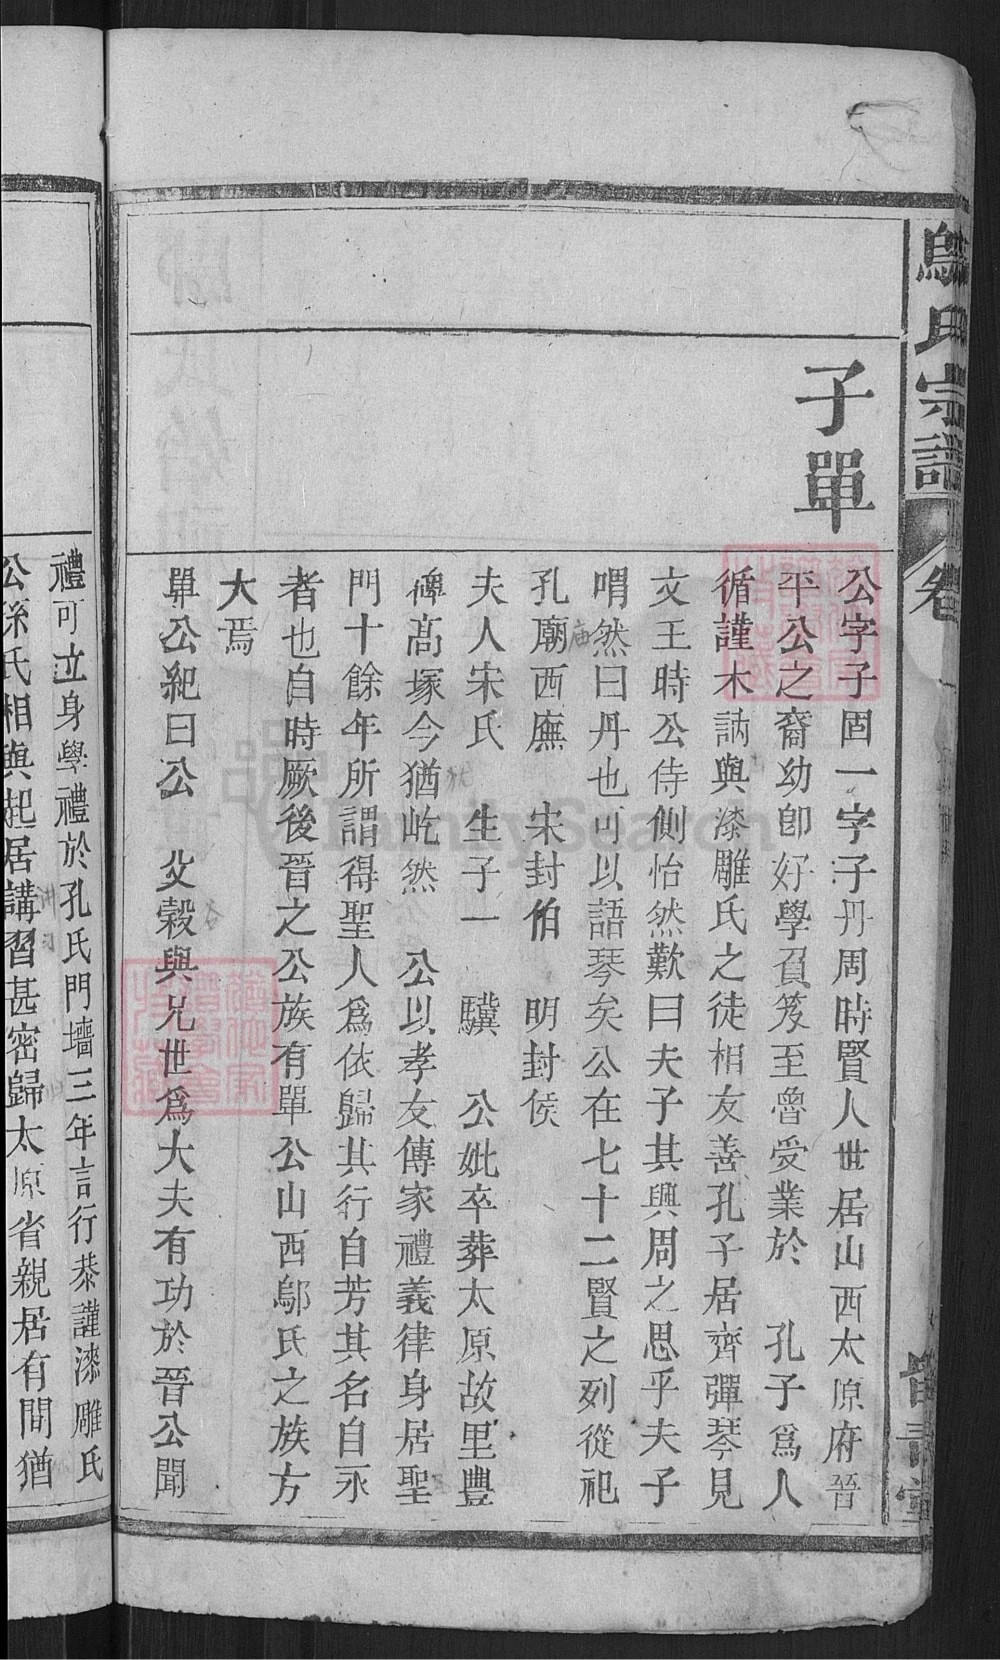 鄔氏宗譜
卷一
子單
公字子固一字子丹周時賢人世居山西太原府晉
平公之裔幼卽好學負笈至魯受業於 孔子爲人
循謹木訥與漆雕氏之徒相友善孔子居齊彈琴見
文王時公侍側怡然歎曰夫子其興周之思乎夫子
喟然曰丹也可以語琴矣公在七十二賢之列從祀
孔廟西廡 宋封伯 明封侯
庙
夫人宋氏 生子一 驥 公妣卒葬太原故里豊
碑髙塚今猶屹然 公以孝友傳家禮義律身居聖
犹
門十餘年所謂得聖人爲依歸其行自芳其名自永
者也自時厥後晉之公族有單公山西鄔氏之族方
大焉
單公紀曰公 父榖與兄世爲大夫有功於晉公聞
禮可立身學禮於孔氏門墻三年言行恭謹漆雕氏
公孫氏相與起居講習甚密歸太原省親居有間猶
FamilySearch